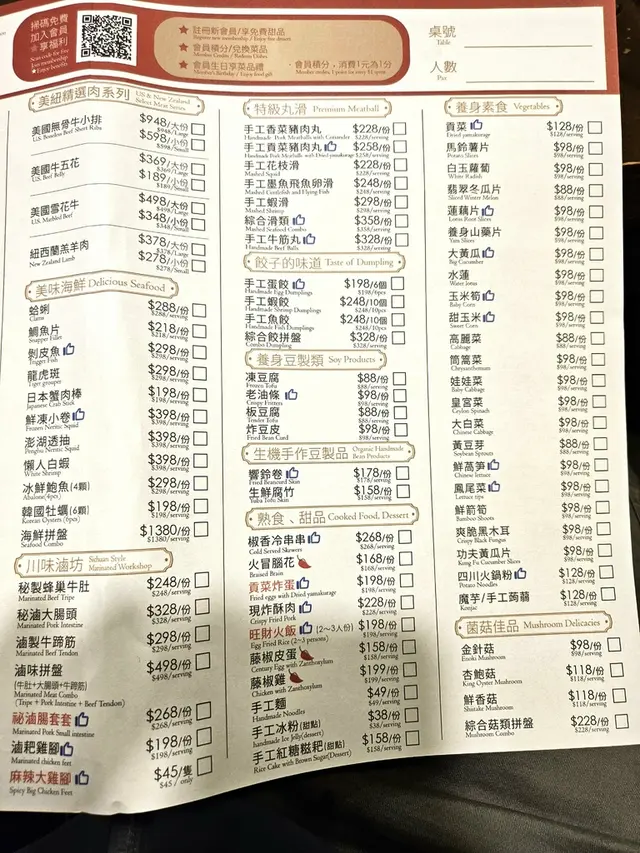 掃碼免費
加入會員
★享福利
Scan code for free
Join membership
★Enjoy benefits
★ 註冊新會員/享免費甜品
Register new membership / Enjoy free dessert
★ 會員積分/兌換菜品
Members Credits / Redeem Dishes
★ 會員生日享菜品禮
Member's Birthday / Enjoy food gift
・會員積分，消費1元為1分
桌號
Table
人數
Pax
美紐精選肉系列 US & New Zealand Select Meat Series
美國無骨牛小排 $948/大份
U.S. Boneless Beef Short Ribs $948/Large
$598/小份
$598/Small
美國牛五花 $369/大份
U.S. Beef Belly $369/Large
$189/小份
$189/Small
美國雪花牛 $498/大份
U.S. Marbled Beef $498/Large
$348/小份
$348/Small
紐西蘭羔羊肉 $378/大份
New Zealand Lamb $378/Large
$278/小份
$278/Small
美味海鮮 Delicious Seafood
蛤蜊 $288/份
Clams $288/serving
鯛魚片 $218/份
Snapper Fillet $218/serving
剝皮魚 $298/份
Trigger Fish $298/serving
龍虎斑 $298/份
Tiger grouper $298/serving
日本蟹肉棒 $198/份
Japanese Crab Stick $198/serving
鮮凍小卷 $398/份
Frozen Neritic Squid $398/serving
澎湖透抽 $398/份
Penghu Neritic Squid $398/serving
懶人白蝦 $398/份
White Shrimp $398/serving
冰鮮鮑魚(4顆) $298/份
Abalone(4pcs) $298/serving
韓國牡蠣(6顆) $198/份
Korean Oysters (6pcs) $198/serving
海鮮拼盤 $1380/份
Seafood Combo $1380/serving
川味滷坊 Sithuan Style Marinated Workshop
秘製蜂巢牛肚 $248/份
Marinated Beef Tripe $248/serving
秘滷大腸頭 $328/份
Marinated Pork Intestine $328/serving
滷製牛蹄筋 $298/份
Marinated Beef Tendon $298/serving
滷味拼盤 $498/份
(牛肚+大腸頭+牛蹄筋) $498/serving
Marinated Meat Combo
(Tripe + Pork Intestine + Beef Tendon)
秘滷腸套套 $268/份
Marinated Pork Small intestine $268/serving
滷粑雞腳 $198/份
Marinated chicken feet $198/serving
麻辣大雞腳 $45/隻
Spicy Big Chicken Feet $45 /only
特級丸滑 Premium Meatball
手工香菜豬肉丸 $228/份
Handmade Pork Meatballs with Coriander $228/serving
手工貢菜豬肉丸 $258/份
Handmade Pork Meatballs with Dried yamakurage $258/serving
手工花枝滑 $228/份
Mashed Squid $228/serving
手工墨魚飛魚卵滑 $248/份
Mashed Cuttlefish and Flying Fish $248/serving
手工蝦滑 $298/份
Mashed Shrimp $298/serving
綜合滑類 $358/份
Mashed Seafood Combo $358/serving
手工牛筋丸 $328/份
Handmade Beef Balls $328/serving
餃子的味道 Taste of Dumpling
手工蛋餃 $198/6個
Handmade Egg Dumplings $198/6pcs
手工蝦餃 $248/10個
Handmade Shrimp Dumplings $248/10pcs
手工魚餃 $248/10個
Handmade Fish Dumplings $248/10pcs
綜合餃拼盤 $328/份
Combo Dumpling $328/serving
養身豆製類 Soy Products
凍豆腐 $88/份
Frozen Tofu $88/serving
老油條 $98/份
Crispy Fritters $98/serving
板豆腐 $88/份
Tender Tofu $88/serving
炸豆皮 $98/份
Fried Bean Curd $98/serving
生機手作豆製品 Organic Handmade Bean Products
響鈴卷 $178/份
Fried Beancurd Skin $178/serving
生鮮腐竹 $158/份
Yuba Tofu Skin $158/serving
熟食、甜品 Cooked Food, Dessert
椒香冷串串 $268/份
Cold Served Skewers $268/serving
火冒腦花 $168/份
Braised Brain $168/serving
貢菜炸蛋 $198/份
Fried eggs with Dried yamakurage $198/serving
現炸酥肉 $228/份
Crispy Fried Pork $228/serving
旺財火飯 (2～3人份) $198/份
Egg Fried Rice (2~3 persons) $198/serving
藤椒皮蛋 $158/份
Century Egg with Zanthoxylum $158/serving
藤椒雞 $199/份
Chicken with Zanthoxylum $199/serving
手工麵 $49/份
Handmade Noodles $49/serving
手工冰粉(甜點) $38/份
handmade Ice Jelly(dessert) $38/serving
手工紅糖糍粑(甜點) $158/份
Rice Cake with Brown Sugar(Dessert) $158/serving
養身素食 Vegetables
貢菜 $128/份
Dried yamakurage $128/serving
馬鈴薯片 $98/份
Potato Slices $98/serving
白玉蘿蔔 $98/份
White Radish $98/serving
翡翠冬瓜片 $88/份
Sliced Winter Melon $88/serving
蓮藕片 $98/份
Lotus Root Slices $98/serving
養身山藥片 $98/份
Yam Slices $98/serving
大黃瓜 $98/份
Big Cucumber $98/serving
水蓮 $98/份
Water Lotus $98/serving
玉米筍 $98/份
Baby Corn $98/serving
甜玉米 $98/份
Sweet Corn $98/serving
高麗菜 $88/份
Cabbage $88/serving
茼蒿菜 $98/份
Chrysanthemum $98/serving
娃娃菜 $98/份
Baby Cabbage $98/serving
皇宮菜 $98/份
Ceylon Spinach $98/serving
大白菜 $98/份
Chinese Cabbage $98/serving
黃豆芽 $88/份
Soybean Sprouts $88/serving
鮮萵筍 $98/份
Chinese Lettuce $98/serving
鳳尾菜 $98/份
Lettuce tips $98/serving
鮮箭筍 $98/份
Bamboo Shoots $98/serving
爽脆黑木耳 $98/份
Crispy Black Fungus $98/serving
功夫黃瓜片 $98/份
Kung Fu Cucumber Slices $98/serving
四川火鍋粉 $128/份
Potato Noodles $128/serving
魔芋/手工蒟蒻 $128/份
Konjac $128/serving
菌菇佳品 Mushroom Delicacies
金針菇 $98/份
Enoki Mushroom $98/serving
杏鮑菇 $118/份
King Oyster Mushroom $118/serving
鮮香菇 $118/份
Shiitake Mushroom $118/serving
綜合菇類拼盤 $228/份
Mushroom Combo $228/serving